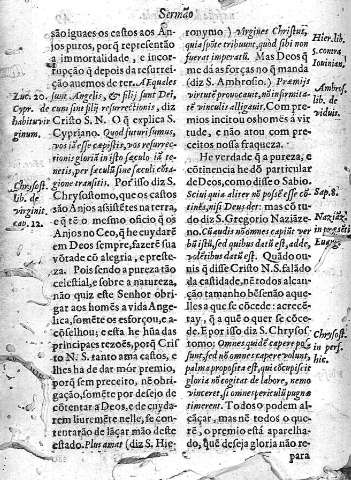 Sermão
são iguaes os castos aos Anjos
puros, por q̃ representão
a immortalidade, e incor-
rupção q̃ depois da resurrei-
ção auemos de ter. Æquales
sunt Angelis, & filij sunt Dei,
cum sint filij resurrectionis, diz
Cristo S. N. O q̃ explica S.
Cypriano. Quod futuri sumus,
vos iã esse cæpistis, vos resurrec-
tionis gloriã in isto sæculo iã te-
netis, per sæculũ sine sæculi cõta-
gione transitis. Por isso diz S.
Chrysostomo, que os castos
são Anjos assistẽtes na terra,
e q̃ tẽ o mesmo oficio q̃ os
Anjos no Ceo, q̃ he cuydarẽ
em Deos sempre, fazerẽ sua
võtade cõ alegria, e preste-
za. Pois sendo a pureza tão
celestial, e sobre a natureza,
não quiz este Senhor obri-
gar aos homẽs a vida Ange-
lica, somẽte os esforçou, e a-
cõselhou; e esta he hũa das
principaes rezões, porq̃ Cris-
to N. S. tanto ama castos, e
lhes ha de dar mòr premio,
porq̃ sem preceito, nẽ obri-
gação, somẽte por desejo de
cõtentar a Deos, e de cuyda-
rem liuremẽte nelle, se con-
tentarão de lãçar mão deste
estado. Plus amat (diz S. Hie-
Luc. 20.
Cypr. de
habitu vir
ginum.
Chrysost.
lib. de
virginit.
cap. 12.
ronymo) Virgines Christus,
quia spõte tribuunt, quod sibi non
fuerat imperatũ. Mas Deos q̃
me dá as forças no q̃ manda
(diz S. Ambrosio.) Præmijs
virtutẽ prouocauit, nõ infirmita-
tẽ vinculis alligauit. Com pre-
mios incitou os homẽs á vir-
tude, e não atou com pre-
ceitos nossa fraqueza.
He verdade q̃ a pureza, e
cõtinencia he dõ particular
de Deos, como disse o Sabio.
Sciui quia aliter nõ possẽ esse cõ-
tinẽs, nisi Deus det: mas cõ tu-
do diz S. Gregorio Naziãze-
no. Cũ audis nõ omnes capiũt ver
bũ istũ, sed quibus datũ est, adde,
volẽtibus datũ est. Quãdo ou-
uis q̃ disse Cristo N. S. falãdo
da castidade, nẽ todos alcan-
ção tamanho bẽ senão aque-
lles a que se cõcede: acrecẽ-
tay, q̃ a quẽ o quer se cõce-
de. E por isso diz S. Chrysos-
tomo; Omnes quidẽ capere pos-
sunt, sed nõ omnes capere volunt,
palma proposita est, qui cõcupiscit
gloriã nõ cogitat de labore, nemo
vinceret, si omnes periculũ pugnæ
timerent. Todos o podem al-
cãçar, mas nẽ todos o que-
rẽ, o premio está aparelha-
do, quẽ deseja gloria não re-
para
Hier. lib.
1. contra
Iouinian.
Ambros.
lib. de
viduis.
Sap. 8.
Naziãz.
Chrysost.
in pers.
hic.